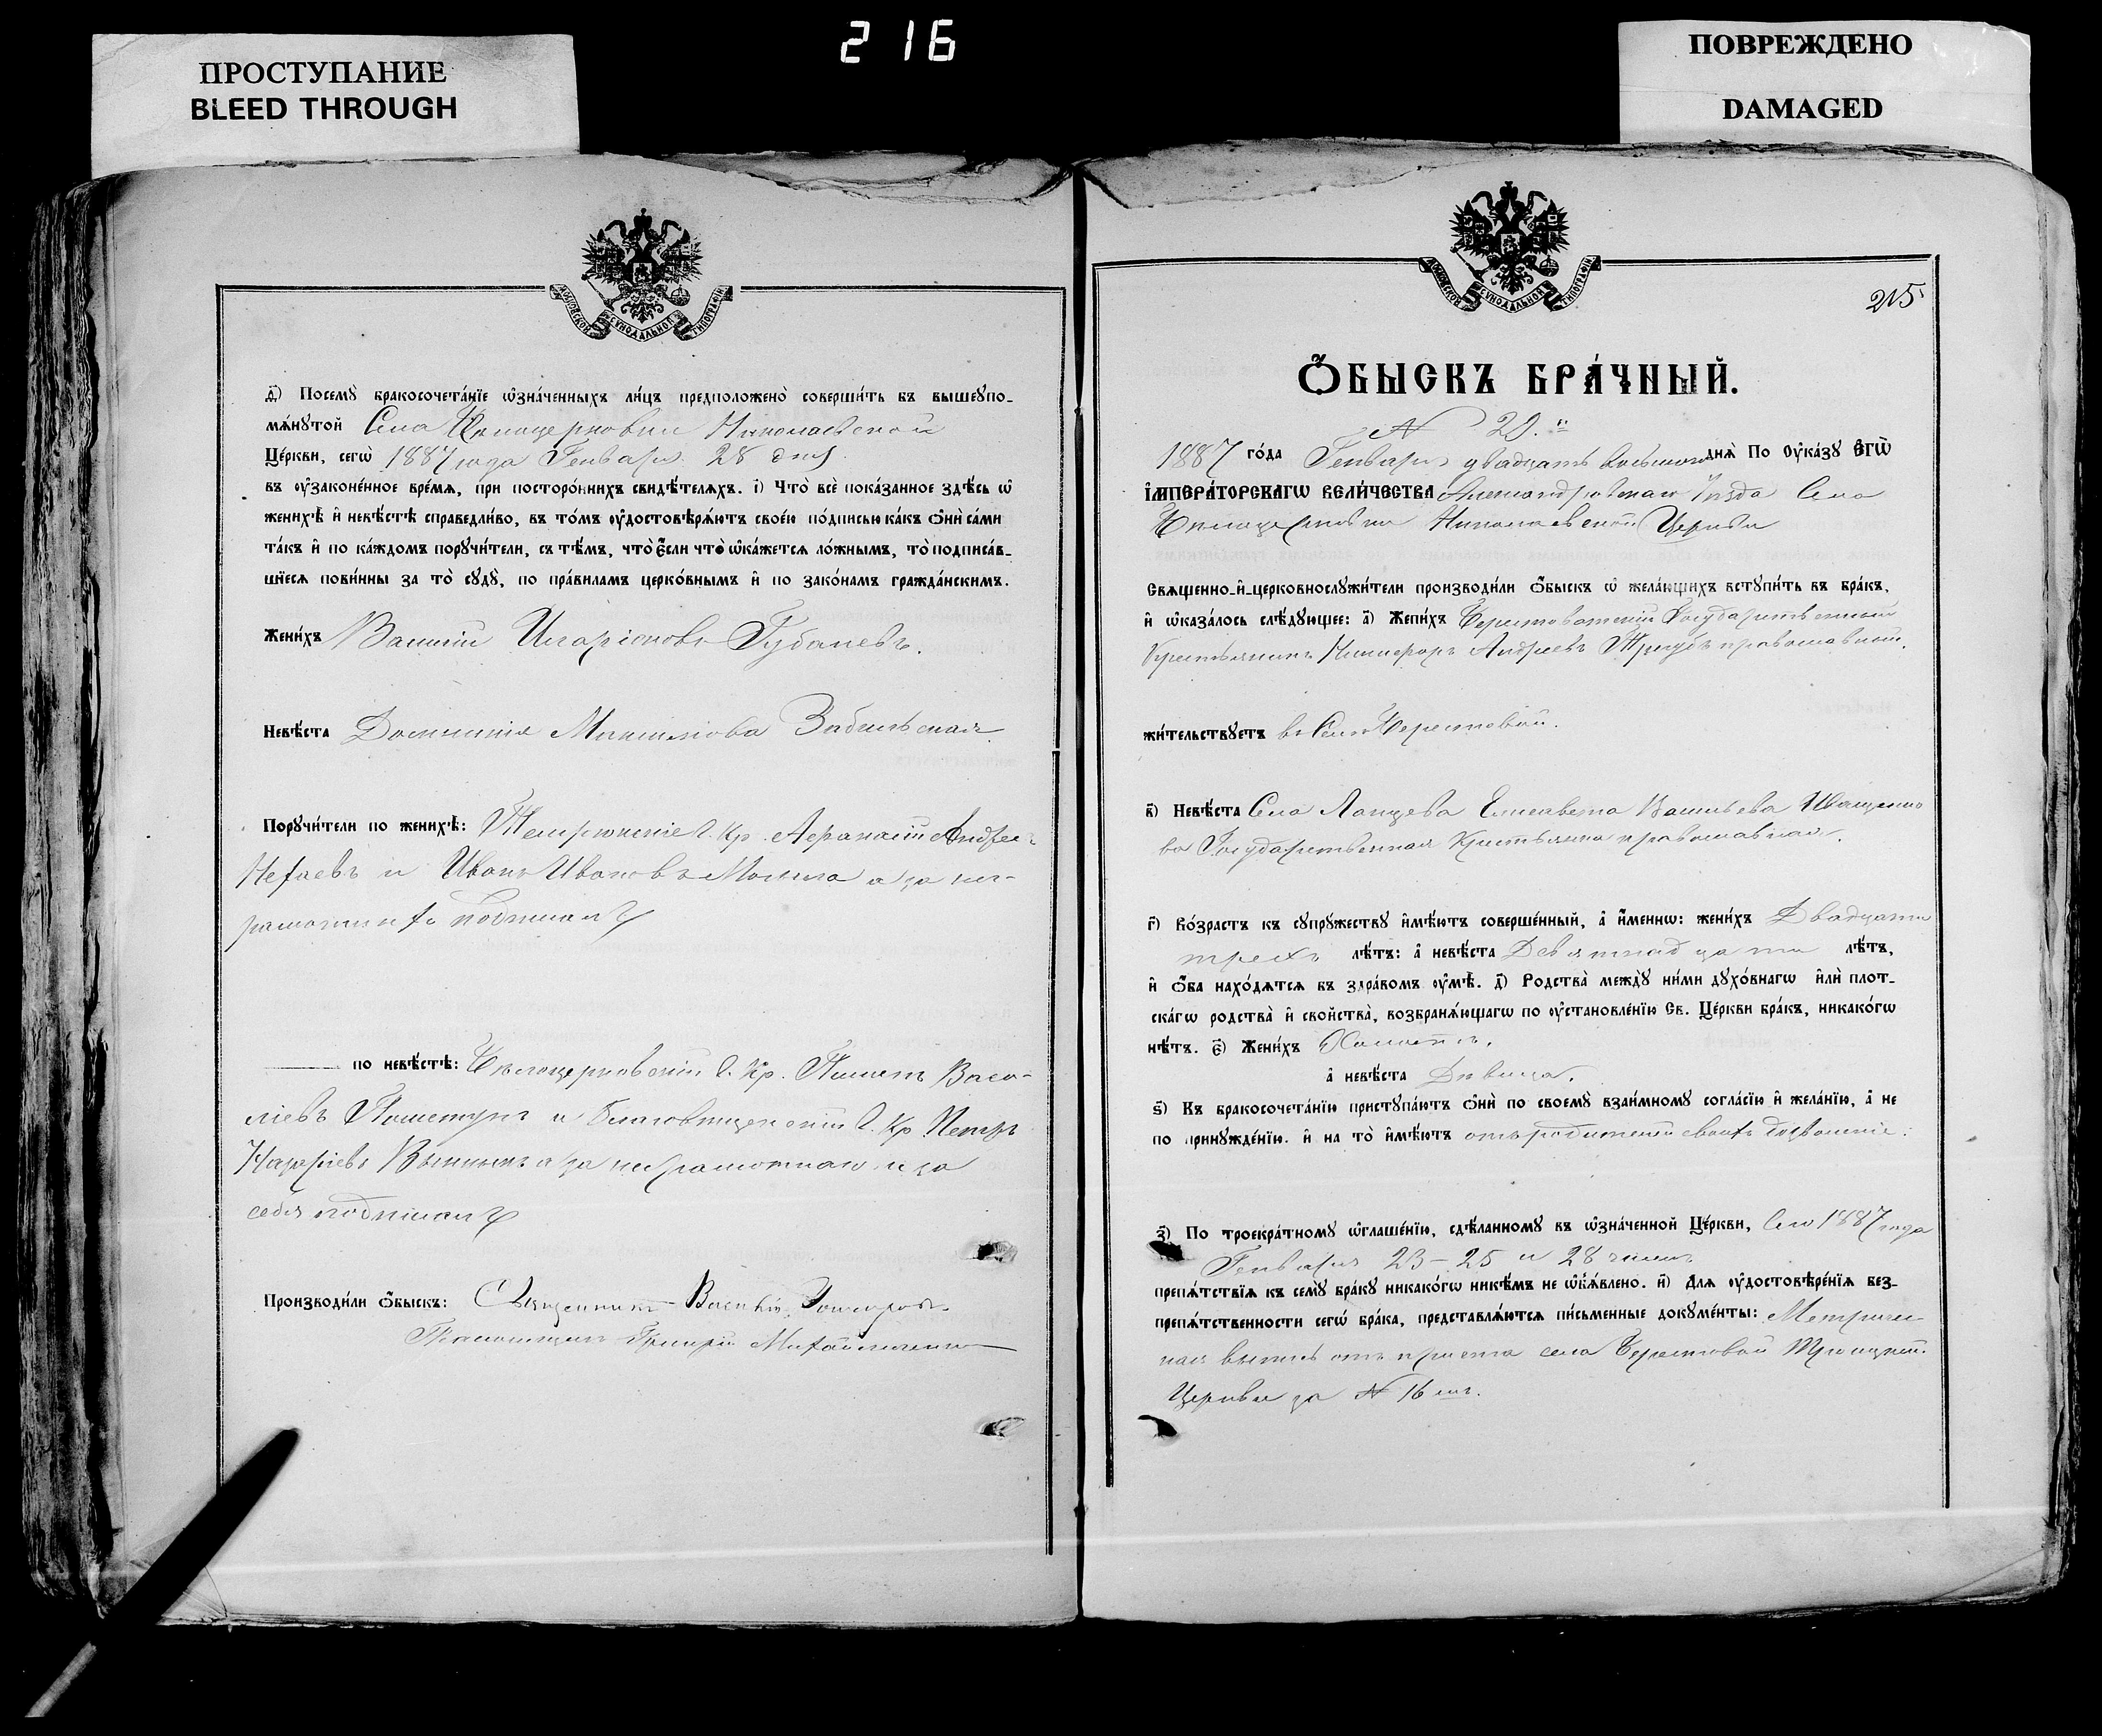 216
ПРОСТУПАНИЕ
BLEED THROUGH
ПОВРЕЖДЕНО
DAMAGED
МОСКОВСКОЙ СѴНОДАЛЬНОЙ ТИПОГРАФІИ
ѳ҃) Посемꙋ̀ бракосочета́нїе ѡ҆зна́ченныхъ ли́цъ предположено̀ соверши́ть въ вышеꙋпо-
мѧ́нꙋтой Села Николаевской
Це́ркви, сегѡ̀ 1887 года Генваря 28 дня
въ ᲂу҆зако́ненное вре́мѧ, при посторо́ннихъ свидѣ́телѧхъ. і҃) Что̀ всѐ пока́занное здѣ́сь ѡ҆
женихѣ̀ и҆ невѣ́стѣ справедли́во, въ то́мъ ᲂу҆достовѣрѧ́ютъ свое́ю по́дписью ка́къ ѻ҆нѝ са́ми
та́къ и҆ по ка́ждомъ порꙋчи́тели, съ тѣ́мъ, что̀ є҆́сли что̀ ѡ҆ка́жетсѧ ло́жнымъ, то̀ подписа́в-
шїесѧ пови́нны за то̀ сꙋдꙋ̀, по пра́виламъ церко́внымъ и҆ по зако́намъ гражда́нскимъ.
Жени́хъ Василій Иларіоновъ Губаневъ.
Невѣ́ста Домникія Максимова Забельская
Порꙋчи́тели по женихѣ̀: Кр. Аѳанасій Андреевъ
Нефаевъ и Иванъ Ивановъ а за неграмотныхъ подписалъ
по невѣ́стѣ: Бѣлоцерковскій С. Кр. Васи-
ліевъ и Благовѣщенскій С. Кр. Петръ
Назаріевъ а за неграмотнаго и за
себя подписалъ
Производи́ли ѻ҆́быскъ: Священникъ Василій
Псаломщикъ Григорій Михайличенко
МОСКОВСКОЙ СѴНОДАЛЬНОЙ ТИПОГРАФІИ
215
Ѻ҆́БЫСКЪ БРА́ЧНЫЙ.
N 20.
1887 го́да Генваря двадцать восьмого днѧ̀ По Оу҆ка́зꙋ Є҆гѡ̀
І҆мпера́торскагѡ Вели́чества Александровскаго Уѣзда Села
Николаевской Церкви
Сващенно-и҆-церковнослꙋжи́тели производи́ли ѻ҆́быскъ ѡ҆ жела́ющихъ встꙋпи́ть въ бра́къ,
и҆ ѡ҆каза́лось слѣ́дꙋющее: а҃) Жени́хъ Берестоватскій Государственный
Крестьянинъ Никифоръ Андреевъ Трегубъ православный.
жи́тельствꙋетъ въ Селѣ Берестовой.
в҃) Невѣ́ста Села Ланцева Елисавета Васильева Иващенко-
ва Государственная Крестьянка православная.
г҃) Во́зрастъ къ сꙋпрꙋ́жествꙋ и҆мѣ́ютъ соверше́нный, а҆ и҆́меннѡ: жени́хъ Двадцати
трехъ лѣ́тъ: а҆ невѣ́ста Девятнадцати лѣ́тъ,
и҆ ѻ҆́ба нахо́дѧтсѧ въ здра́вомъ ᲂу҆мѣ̀. д҃) Родства̀ междꙋ̀ ни́ми дꙋхо́внагѡ и҆лѝ плот-
ска́гѡ родства̀ и҆ сво́йства, возбранѧ́ющагѡ по ᲂу҆становле́нїю Св. Це́ркви бра́къ, никако́гѡ
нѣ́тъ. є҃) Жени́хъ Холостъ.
а҆ невѣ́ста Дѣвица.
ѕ҃) Къ бракосочета́нїю пристꙋпа́ютъ ѻ҆нѝ по своемꙋ̀ взаи́мномꙋ согла́сїю и҆ жела́нїю, а҆ не
по принꙋжде́нїю. и҆ на то̀ и҆мѣ́ютъ отъ родителей своихъ дозволеніе.
з҃) По троекра́тномꙋ ѡ҆глаше́нїю, сдѣ́ланномꙋ въ ѡ҆зна́ченной Це́ркви, Сего 1887 года
Генваря 23 – 25 и 28 чиселъ
препѧ́тствїѧ къ семꙋ̀ бра́кꙋ никако́гѡ никѣ́мъ не ѡ҆б̾ѧ́влено. и҃) Длѧ ᲂу҆достовѣре́нїѧ без-
препѧ́тственности сегѡ̀ бра́ка, представлѧ́ютсѧ пи́сьменные докꙋме́нты: Метричес-
кая выпись отъ причта села Берестовой Троицкой
Церкви за N 16 мъ.